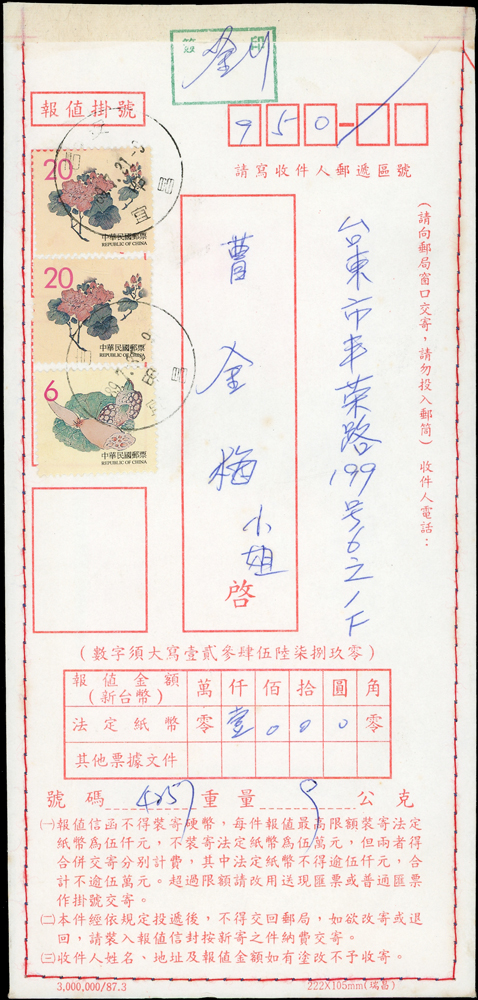 簽 印
劉
報值掛號
950-
請寫收件人郵遞區號
20
中華民國郵票
REPUBLIC OF CHINA
20
中華民國郵票
REPUBLIC OF CHINA
6
中華民國郵票
REPUBLIC OF CHINA
(請向郵局窗口交寄,請勿投入郵筒) 收件人電話:
台東市丰荣路199号6之1F
曹金梅小姐 啓
(數字須大寫壹貳參肆伍陸柒捌玖零)
報值金額(新台幣) 萬 仟 佰 拾 圓 角
法定紙幣 零 壹 0 0 0 零
其他票據文件
號碼 425 重量 9 公克
㈠報值信函不得裝寄硬幣,每件報值最高限額裝寄法定
紙幣為伍仟元,不裝寄法定紙幣為伍萬元,但兩者得
合併交寄分別計費,其中法定紙幣不得逾伍仟元,合
計不逾伍萬元。超過限額請改用送現匯票或普通匯票
作掛號交寄。
㈡本件經依規定投遞後,不得交回郵局,如欲改寄或退
回,請裝入報值信封按新寄之件納費交寄。
㈢收件人姓名、地址及報值金額如有塗改不予收寄。
3,000,000/87.3 222X105mm(瑞昌)